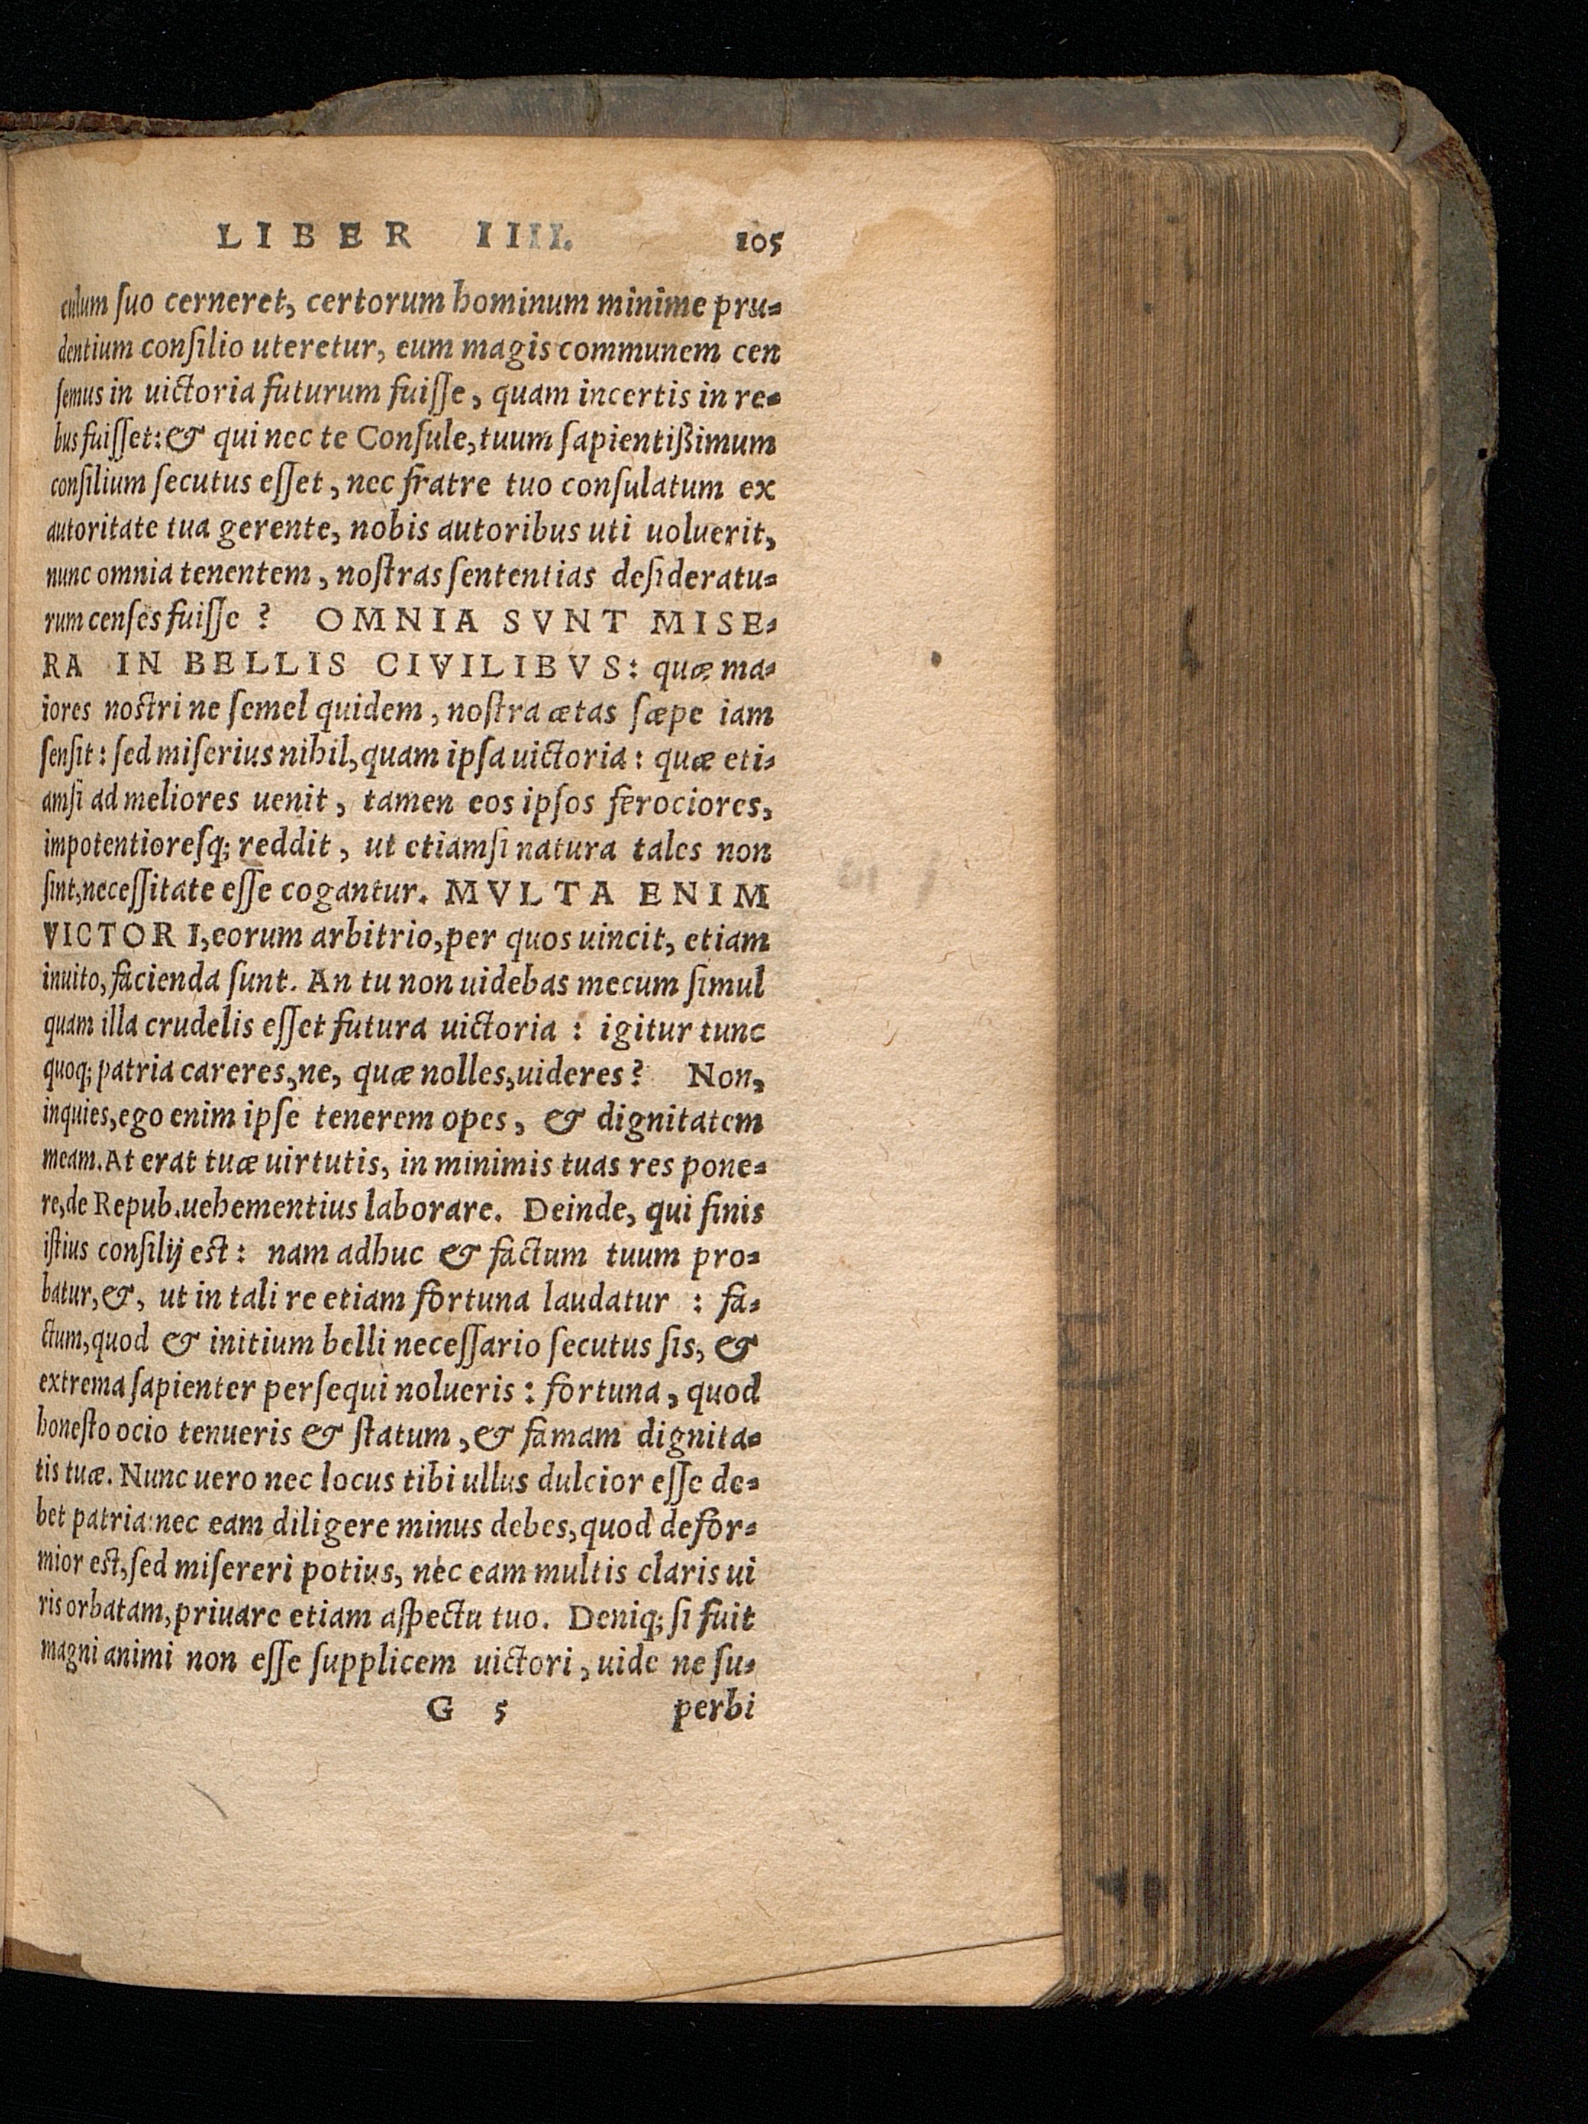 LIBER IIII. 105
culum ſuo cerneret, certorum hominum minime pru-
dentium conſilio uteretur, eum magis communem cen
ſemus in uictoria futurum fuiſſe, quam incertis in re-
bus fuiſſet: & qui nec te Conſule, tuum ſapientißimum
conſilium ſecutus eſſet, nec fratre tuo conſulatum ex
autoritate tua gerente, nobis autoribus uti uoluerit,
nunc omnia tenentem, noſtras ſententias deſideratu-
rum cenſes fuiſſe? OMNIA SVNT MISE-
RA IN BELLIS CIVILIBVS: quæ ma-
iores noſtri ne ſemel quidem, noſtra ætas ſæpe iam
ſenſit: ſed miſerius nihil, quam ipſa uictoria: quæ eti-
amſi ad meliores uenit, tamen eos ipſos ferociores,
impotentioresq; reddit, ut etiamſi natura tales non
ſint, neceſſitate eſſe cogantur. MVLTA ENIM
VICTORI, eorum arbitrio, per quos uincit, etiam
inuito, facienda ſunt. An tu non uidebas mecum ſimul
quam illa crudelis eſſet futura uictoria: igitur tunc
quoq; patria careres, ne, quæ nolles, uideres? Non,
inquies, ego enim ipſe tenerem opes, & dignitatem
meam. At erat tuæ uirtutis, in minimis tuas res pone-
re, de Repub. uehementius laborare. Deinde, qui finis
iſtius conſilij eſt: nam adhuc & factum tuum pro-
batur, &, ut in tali re etiam fortuna laudatur: fa-
ctum, quod & initium belli neceſſario ſecutus ſis, &
extrema ſapienter perſequi nolueris: fortuna, quod
honeſto ocio tenueris & ſtatum, & famam dignita-
tis tuæ. Nunc uero nec locus tibi ullus dulcior eſſe de-
bet patria: nec eam diligere minus debes, quod defor-
mior eſt, ſed miſereri potius, nec eam multis claris ui
ris orbatam, priuare etiam aſpectu tuo. Deniq; ſi fuit
magni animi non eſſe ſupplicem uictori, uide ne ſu-
G 5 perbi